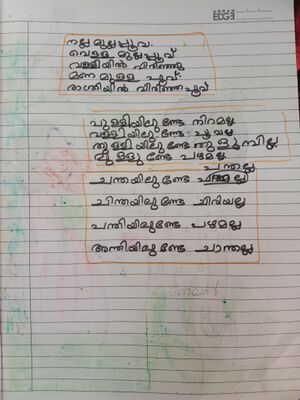 EDGE
നല്ല മുല്ലപ്പൂവ്
വെള്ള മുല്ലപ്പൂവ്
വള്ളിയിൽ വിരിഞ്ഞ
മണമുള്ള പൂവ്
രാത്രിയിൽ വിരിഞ്ഞപൂവ്
പുള്ളിയിലുണ്ടേ നിറമല്ല
വള്ളിയിലുണ്ടേ പൂവല്ല
തുള്ളിയിലുണ്ടേ തുളുമ്പില്ല
മുള്ളുണ്ടേ പഴമല്ല
ചന്തയിലുണ്ടേ പന്തല്ല
ചിന്തയിലുണ്ടേ
പന്തിയിലുണ്ടേ പഴമല്ല
അന്തിയിലുണ്ടേ ചാന്തല്ല